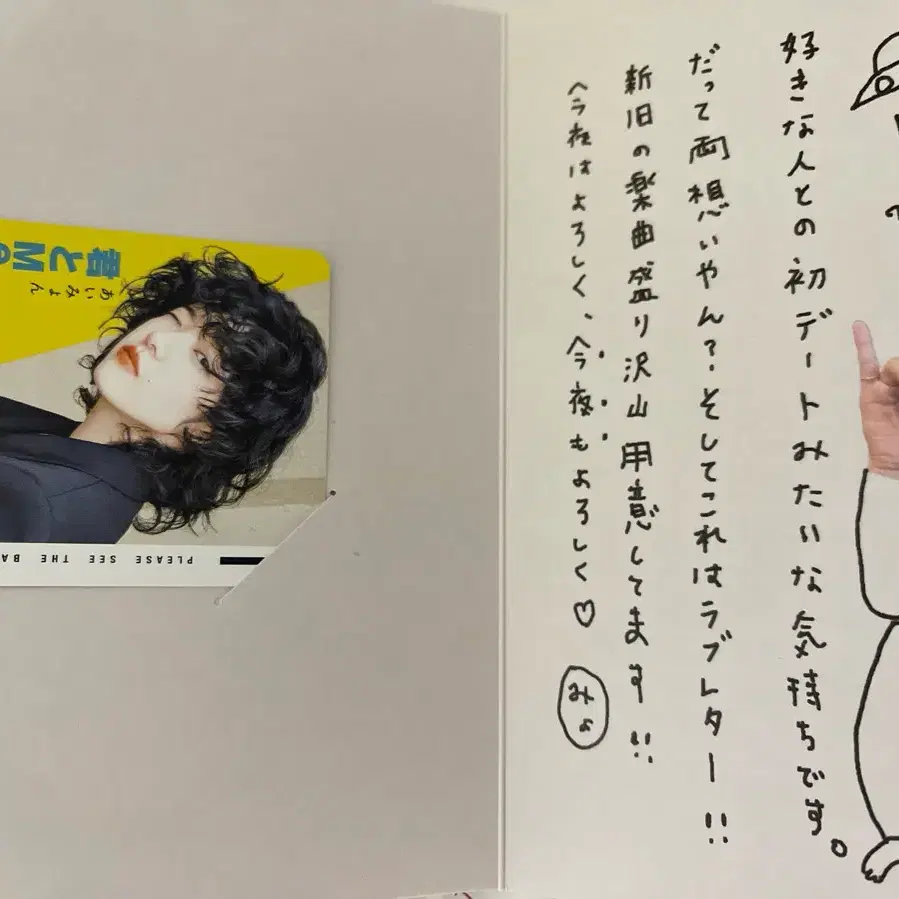 好きな人との初デートみたいな気持ちです。
だって両想いやん?そしてこれはラブレター!!
新旧の楽曲盛り沢山用意してます!!
今夜はよろしく、今夜もよろしく♡
みょ
君とMe
あいみょん
PLEASE SEE THE BA